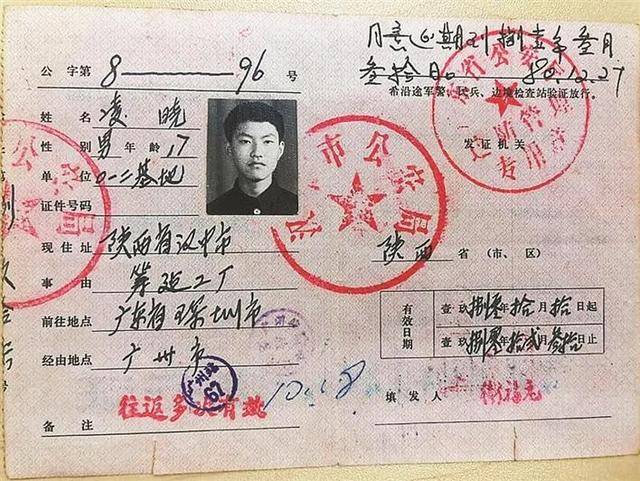 同意延期到捌壹年叁月
叁拾日。 80.12.27
公字第 8——96 号
希沿途军警、民兵、边境检查站验证放行。
姓名 凌晓
性别 男 年龄 17
发证机关
单位 0一二基地
证件号码
现住址 陕西省汉中市
陕西 省(市、区)
事由 筹建工厂
前往地点 广东省深圳市
有效日期
壹玖捌零年拾月拾日起
壹玖捌零年拾贰月叁拾日止
经由地点 广州市
广州站
67
往返多次有效
10.18
填发人 衛福元
备注
市公安局
省公安
边防管理
专用章